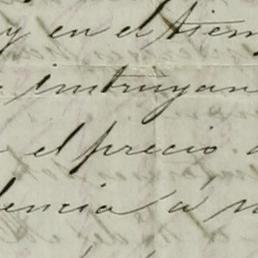 y en el tiem
instruyan
el precio
dencia a